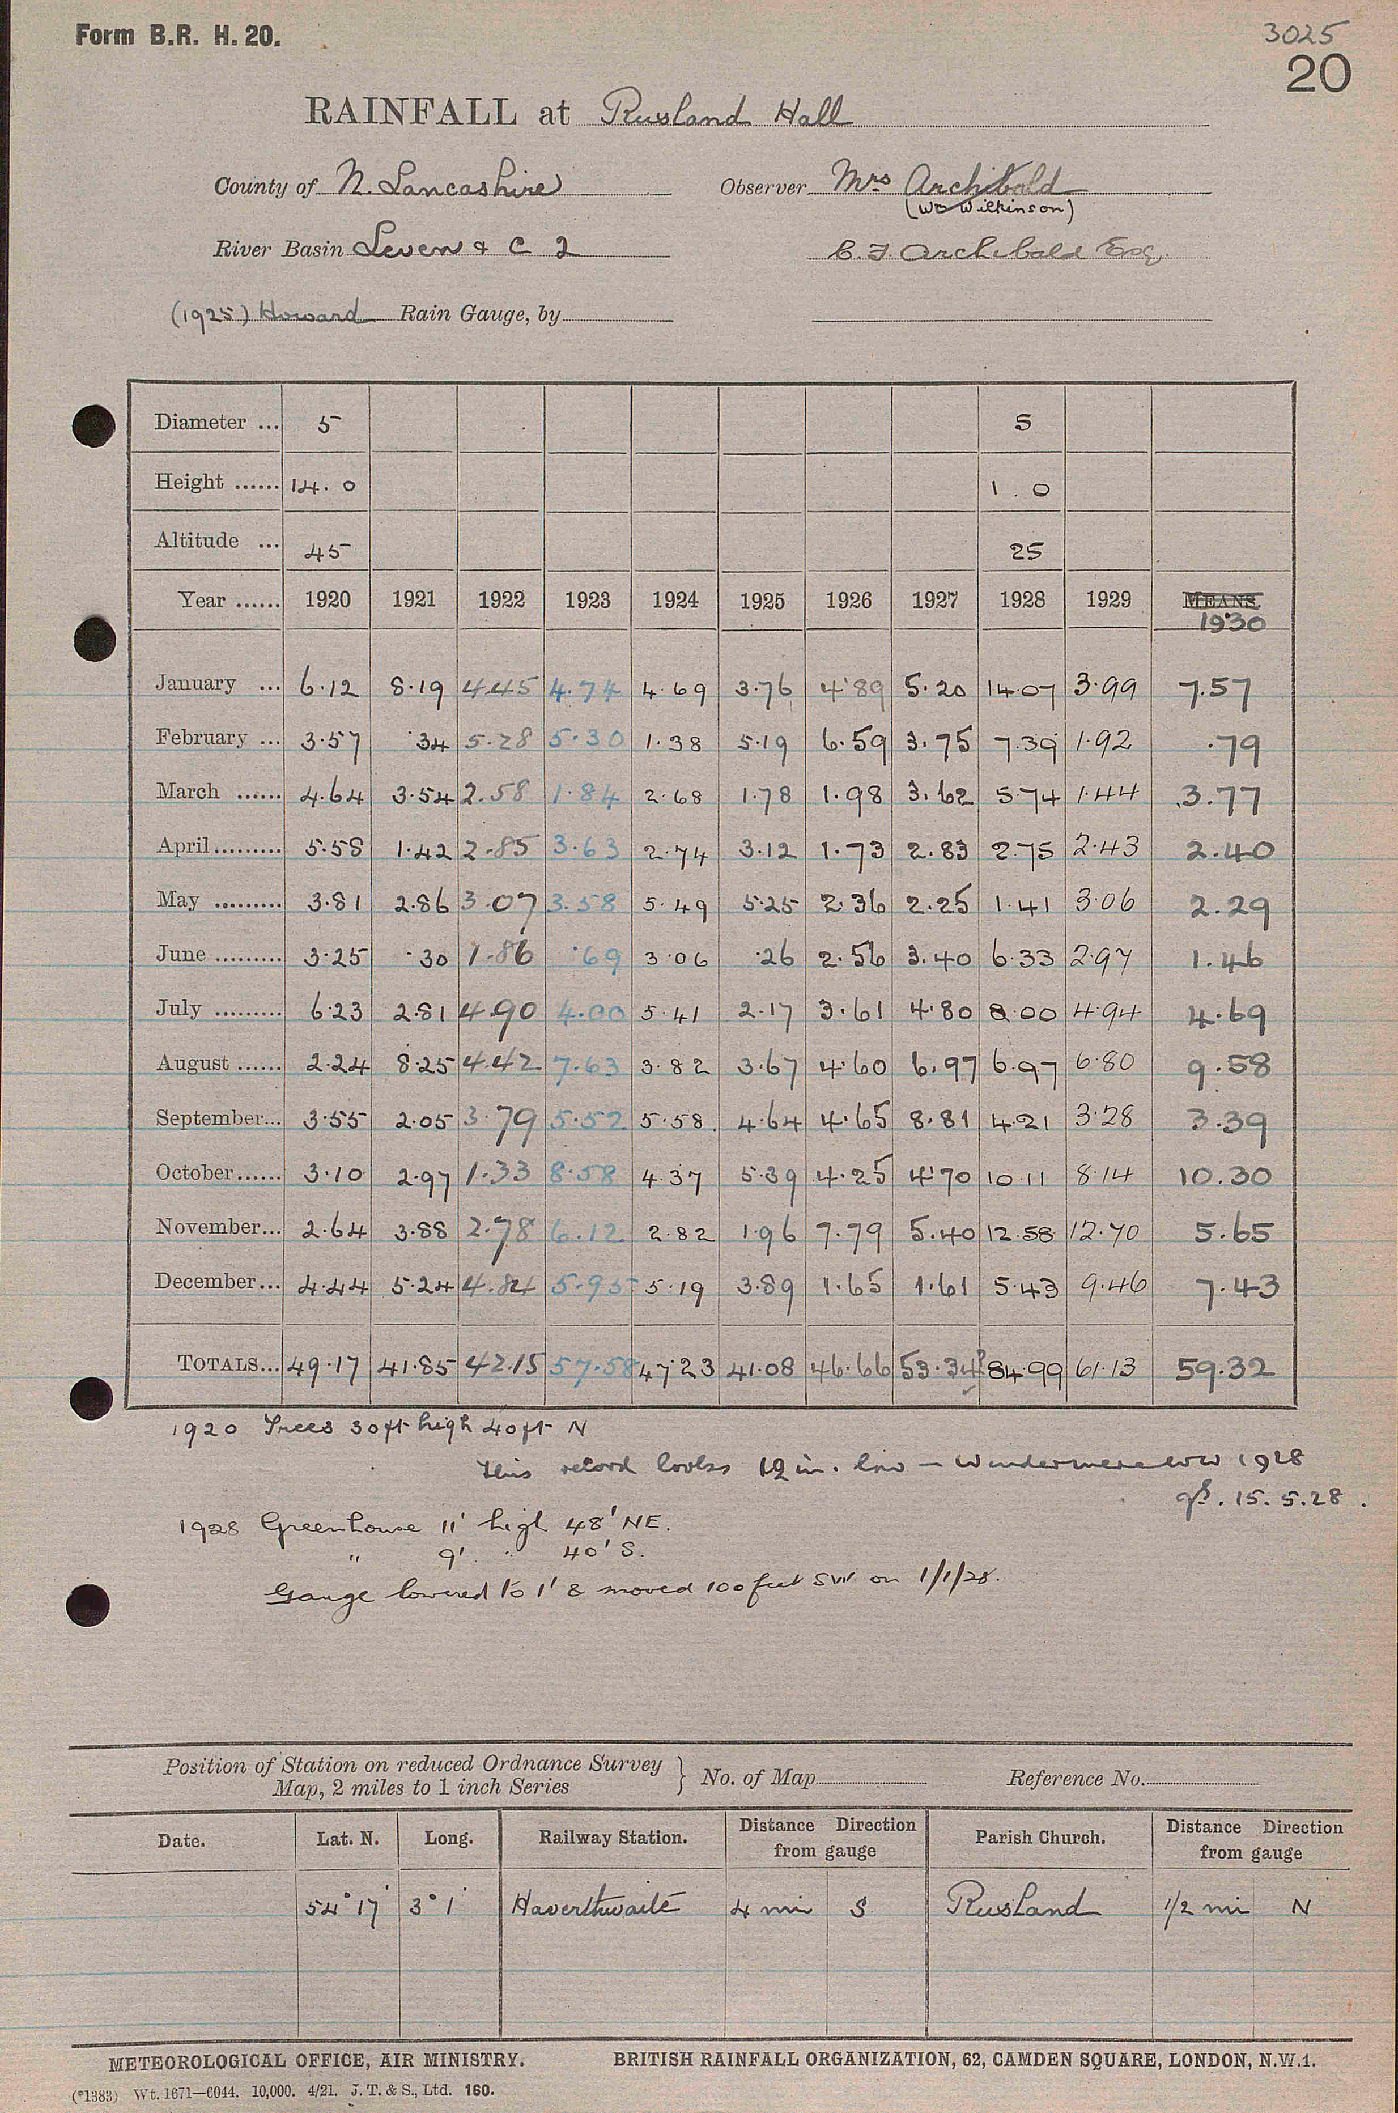 Form B.R. H. 20.
3025
20
RAINFALL at Rusland Hall
County of N. Lancashire Observer Mrs Archibald
(Wm Wilkinson)
River Basin Leven & C 2 C. F. Archibald Esq.
(1925) Howard Rain Gauge, by
Diameter ... 5 5
Height ...... 14. 0 1 . 0
Altitude ... 45 25
Year ...... 1920 1921 1922 1923 1924 1925 1926 1927 1928 1929 MEANS.
1930
January ... 6.12 8.19 4.45 4.74 4.69 3.76 4.89 5.20 14.07 3.99 7.57
February ... 3.57 .34 5.28 5.30 1.38 5.19 6.59 3.75 7.39 1.92 .79
March ...... 4.64 3.54 2.58 1.84 2.68 1.78 1.98 3.62 5.74 1.44 3.77
April......... 5.58 1.42 2.85 3.63 2.74 3.12 1.73 2.83 2.75 2.43 2.40
May ......... 3.81 2.86 3.07 3.58 5.49 5.25 2.36 2.25 1.41 3.06 2.29
June ......... 3.25 .30 1.86 .69 3.06 .26 2.56 3.40 6.33 2.97 1.46
July ......... 6.23 2.81 4.90 4.00 5.41 2.17 3.61 4.80 8.00 4.94 4.69
August ...... 2.24 8.25 4.42 7.63 3.82 3.67 4.60 6.97 6.97 6.80 9.58
September... 3.55 2.05 3.79 5.52 5.58 4.64 4.65 8.81 4.21 3.28 3.39
October...... 3.10 2.97 1.33 8.58 4.37 5.39 4.25 4.70 10.11 8.14 10.30
November... 2.64 3.88 2.78 6.12 2.82 1.96 7.79 5.40 12.58 12.70 5.65
December... 4.44 5.24 4.84 5.95 5.19 3.89 1.65 1.61 5.43 9.46 7.43
TOTALS... 49.17 41.85 42.15 57.58 47.23 41.08 46.66 53.34 84.99 61.13 59.32
1920 Trees 30ft high 40ft N
This record looks 12 in. low — Windermere WW 1928
15.5.28.
1928 Greenhouse 11' high 48' NE.
" 9' " 40' S.
Gauge lowered to 1' & moved 100 feet SW on 1/1/28.
Position of Station on reduced Ordnance Survey
Map, 2 miles to 1 inch Series } No. of Map Reference No.
Date. Lat. N. Long. Railway Station. Distance Direction from gauge Parish Church. Distance Direction from gauge
54° 17' 3° 1' Haverthwaite 4 mi S Rusland 1/2 mi N
METEOROLOGICAL OFFICE, AIR MINISTRY. BRITISH RAINFALL ORGANIZATION, 62, CAMDEN SQUARE, LONDON, N.W.1.
(*1383) Wt. 1671—6044. 10,000. 4/21. J. T. & S., Ltd. 160.